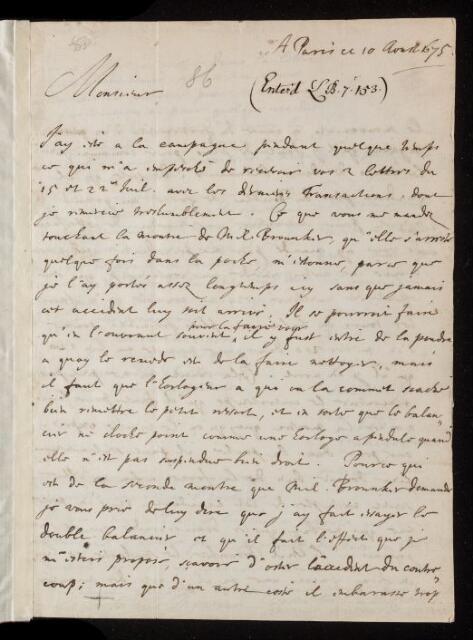 A Paris ce 10 Aoust 1675.
86
Monsieur
(Enter'd L.B. 7. 153.)
J'ay esté a la campagne pendant quelque temps
ce qui m'a empesché de recevoir vos 2 lettres du
15 et 22 Juil. avec les dernieres Transactions, dont
je vous remercie treshumblement. Ce que vous me mandez
touchant la montre de Mil. Brounker, qu'elle s'arreste
quelque fois dans la poche m'estonne, parce que
je l'ay portée assez longtemps icy sans que jamais
cet accident luy soit arrivé. Il se pourroit faire
pour la faire voir
qu'en l'ouvrant souvent, il y fust entré de la poudre
a quoy le remede est de la faire nettoyer, mais
il faut que l'horlogeur a qui on la commet scache
bien remettre le petit ressort, et en sorte que le balan-
cier ne cloche point comme une horloge a pendule quand
elle n'est pas suspendue bien droit. Pour ce qui
est de la seconde montre que Mil. Brounker demande
je vous prie de luy dire que j'ay fait essayer le
double balancier et qu'il fait l'effect que je
m'estois proposé, scavoir d'oster l'accident du contre
coup; mais que d'un autre costé il embarasse trop